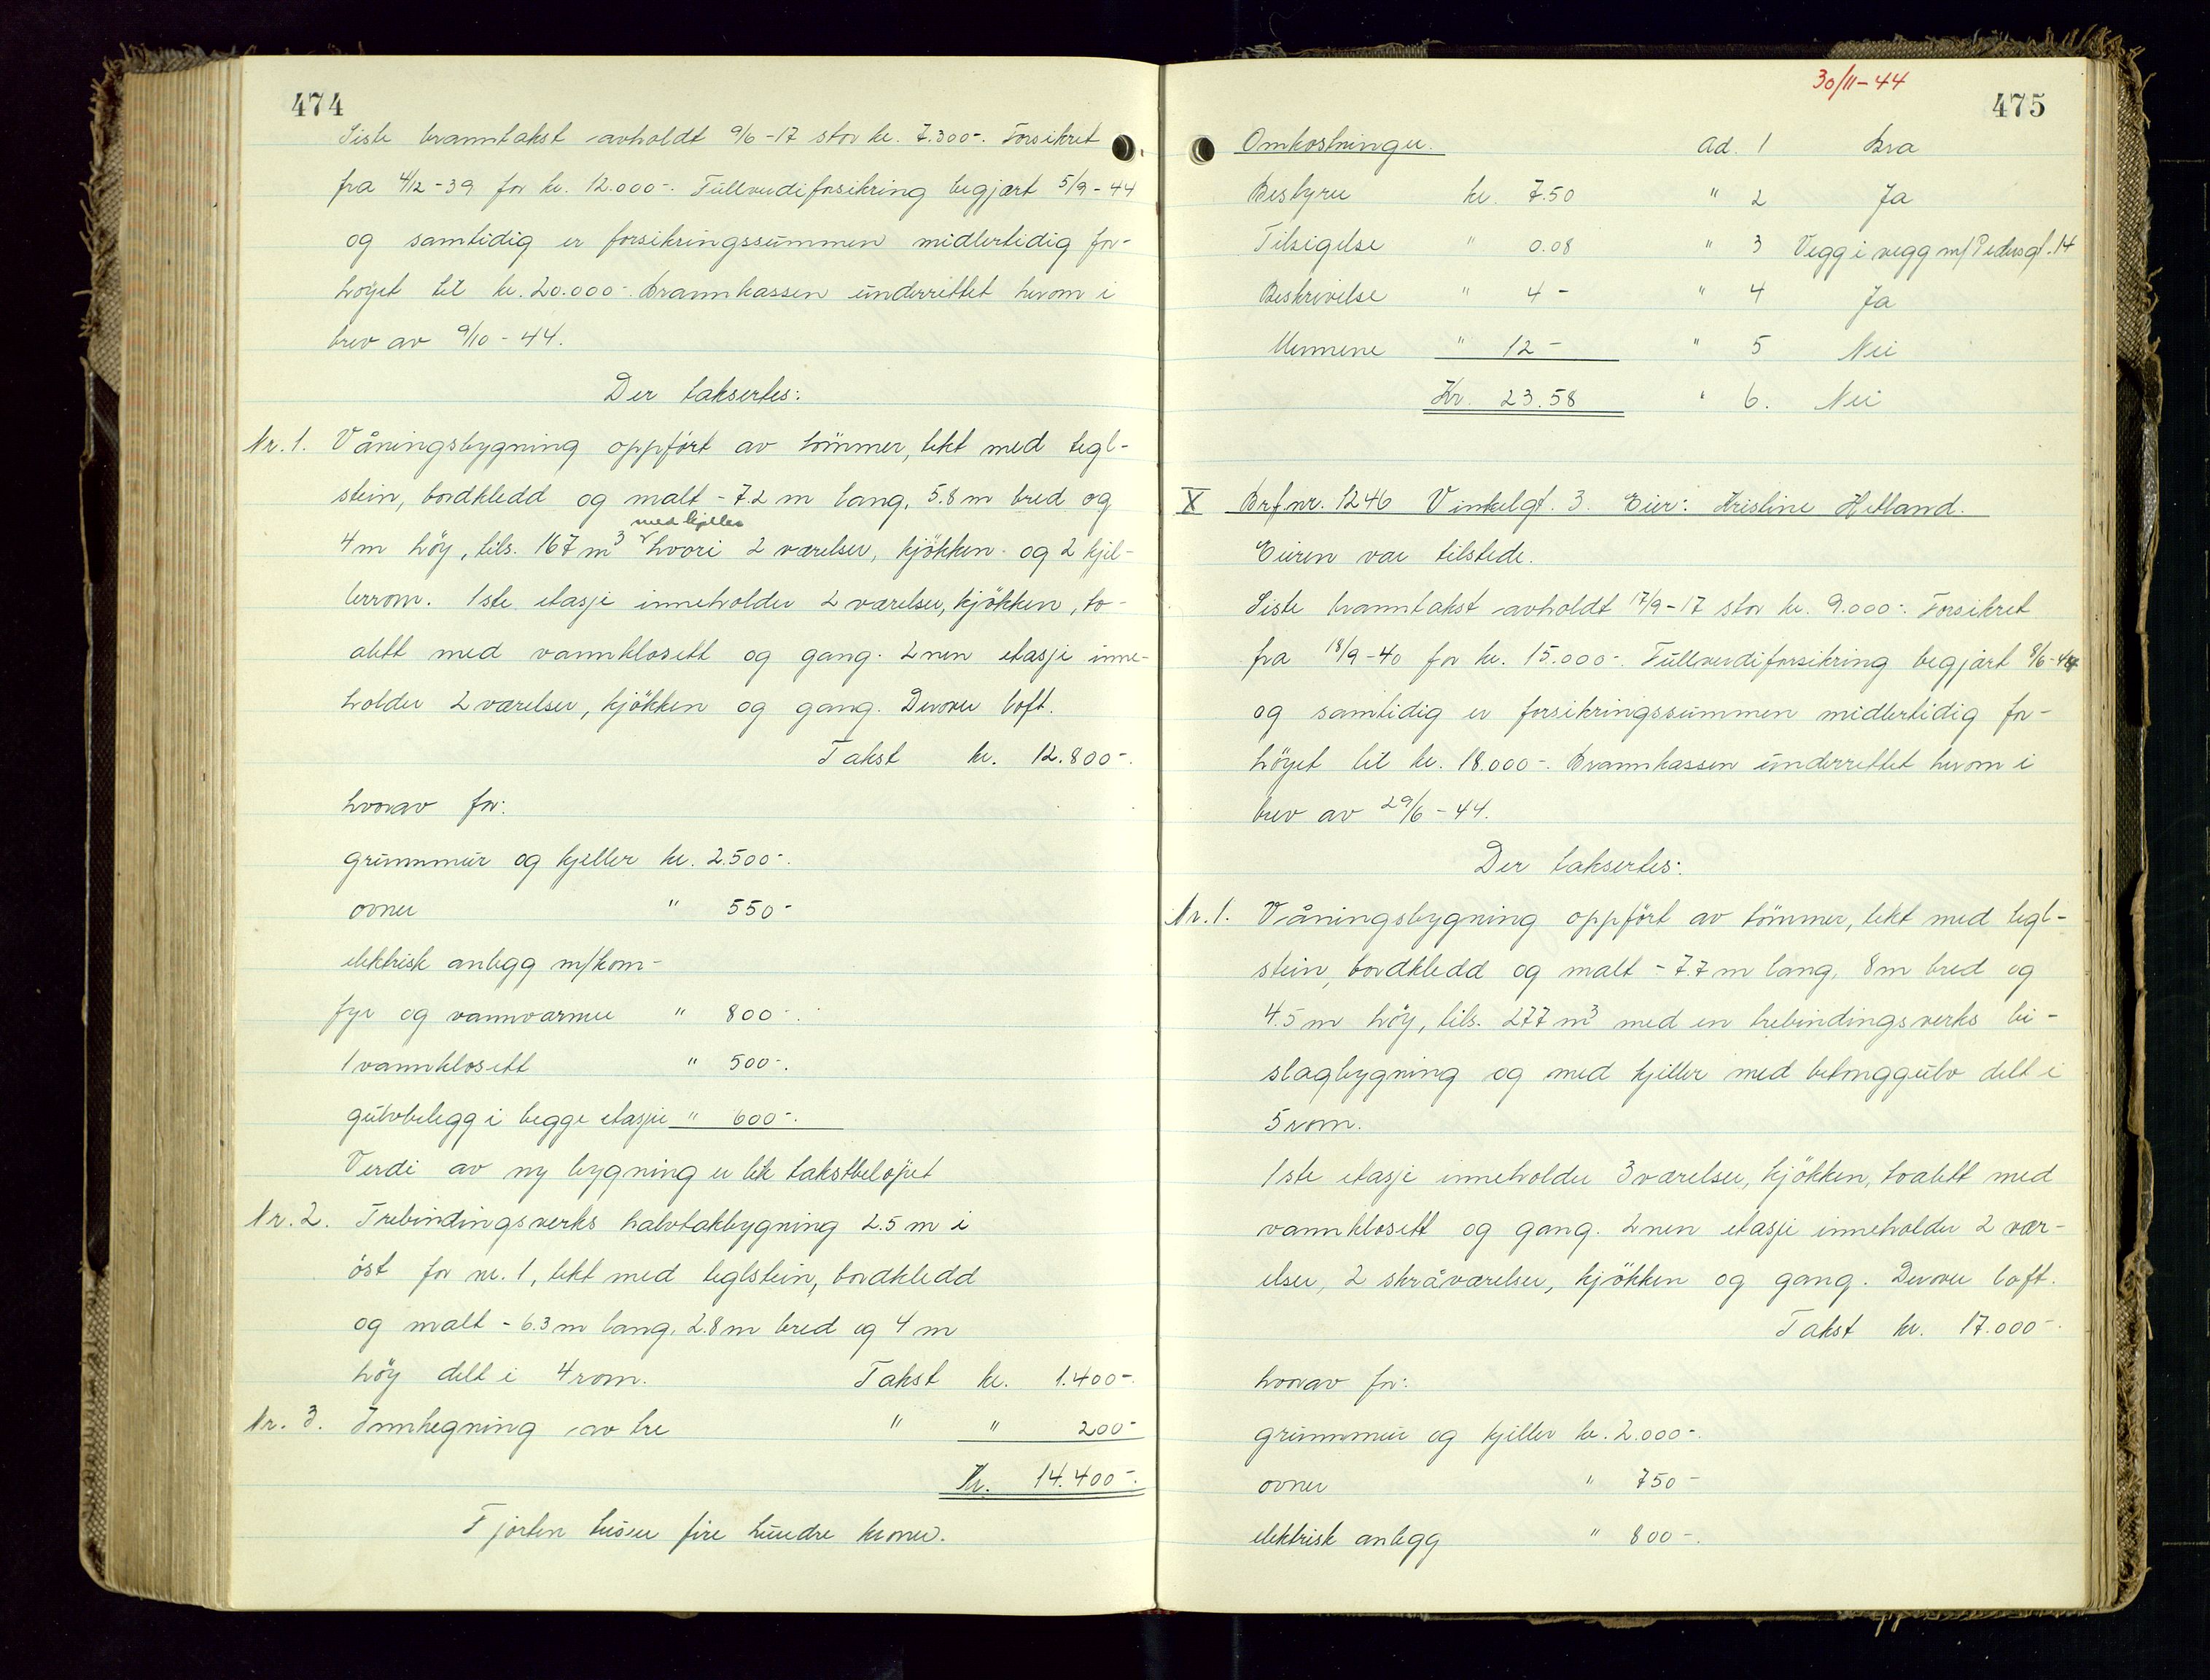 474
Siste branntakst avholdt 9/6-17 stor kr. 7.300-. Forsikret
fra 4/12-39 for kr. 12.000-. Fullverdiforsikring begjært 5/9-44
og samtidig er forsikringssummen midlertidig for-
höyet til kr. 20.000-. Brannkassen underrettet herom i
brev av 9/10-44.
Der taksertes:
Nr. 1. Våningsbygning oppfört av tömmer, tekt med tegl-
stein, bordkledd og malt - 7.2 m lang, 5.8 m bred og
med kjeller
4 m höy, tils. 167 m³ hvori 2 værelser, kjökken og 2 kjel-
lerrom. 1ste etasje inneholder 2 værelser, kjökken, to-
alett med vannklosett og gang. 2nen etasje inne-
holder 2 værelser, kjökken og gang. Derover loft.
Takst kr. 12.800-.
hvorav for:
grunnmur og kjeller kr. 2.500-.
ovner " 550-
elektrisk anlegg m/kom-
fyr og vannvarmer " 800-.
1 vannklosett " 500-.
gulvbelegg i begge etasjer " 600-.
Verdi av ny bygning er lik takstbelöpet
Nr. 2. Trebindingsverks halvtakbygning 2.5 m i
öst for nr. 1, tekt med teglstein, bordkledd
og malt - 6.3 m lang, 2.8 m bred og 4 m
höy delt i 4 rom. Takst kr. 1.400-.
Nr. 3. Innhegning av tre " " 200-
Kr. 14.400-.
Fjorten tusen fire hundre kroner.
30/11-44
475
Omkostninger. Ad. 1 Bra
Bestyrer kr. 7.50 " 2 Ja
Tilsigelse " 0.08 " 3 Vegg i vegg m/ Pedersgt. 14
Beskrivelse " 4- " 4 Ja
Mennene " 12- " 5 Nei
Kr. 23.58 " 6. Nei
X Brf.nr. 1246 Vinkelgt. 3. Eier: Kristine Helland.
Eieren var tilstede.
Siste branntakst avholdt 17/9-17 stor kr. 9.000-. Forsikret
fra 18/9-40 for kr. 15.000-. Fullverdiforsikring begjært 8/6-44
og samtidig er forsikringssummen midlertidig for-
höyet til kr. 18.000-. Brannkassen underrettet herom i
brev av 29/6-44.
Der taksertes:
Nr. 1. Våningsbygning oppfört av tömmer, tekt med tegl-
stein, bordkledd og malt - 7.7 m lang, 8 m bred og
4.5 m höy, tils. 277 m³ med en trebindingsverks bi-
slagbygning og med kjeller med betonggulv delt i
5 rom.
1ste etasje inneholder 3 værelser, kjökken, toalett med
vannklosett og gang. 2nen etasje inneholder 2 vær-
elser, 2 skråværelser, kjökken og gang. Derover loft.
Takst kr. 17.000-.
hvorav for:
grunnmur og kjeller kr. 2.000-.
ovner " 750-
elektrisk anlegg " 800-.